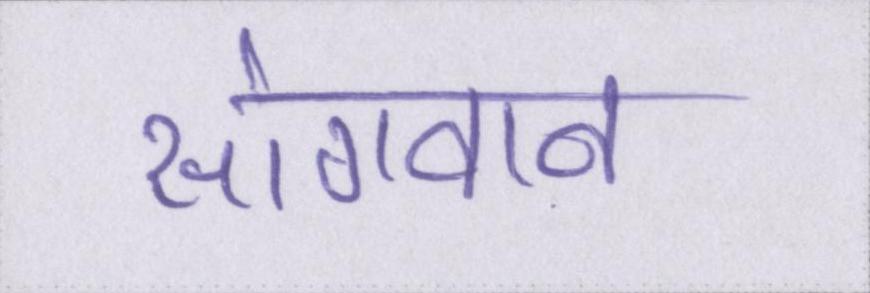 सोगवान